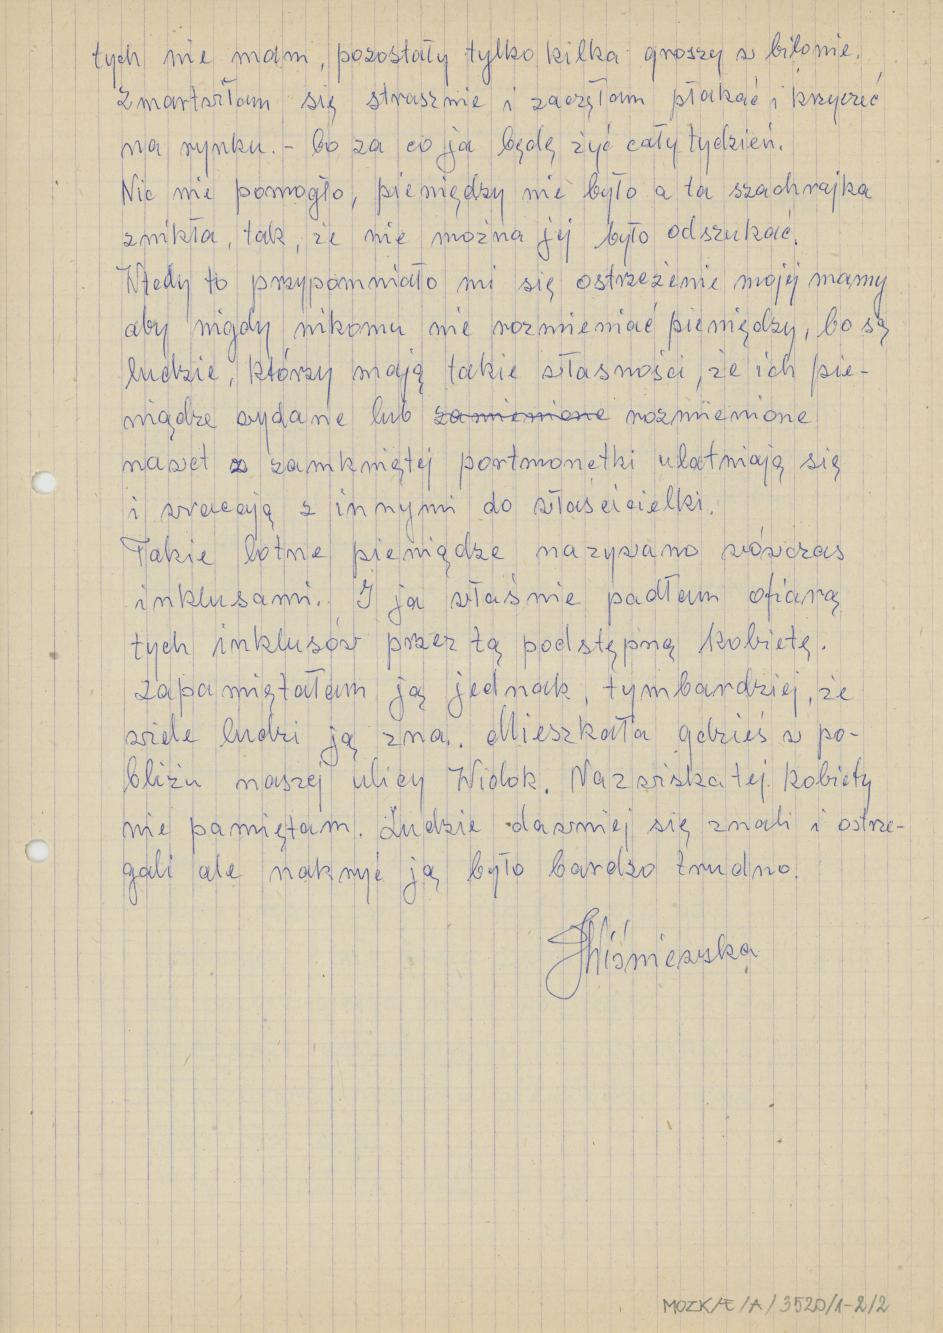 tych nie mam, pozostały tylko kilka groszy w bilonie.
Zmartwiłam się strasznie i zaczęłam płakać i krzyczeć
na rynku. - bo za co ja będę żyć cały tydzień.
Nic nie pomogło, pieniędzy nie było a ta szachrajka
znikła, tak, że nie można jej było odszukać.
Wtedy to przypomniało mi się ostrzeżenie mojej mamy
aby nigdy nikomu nie rozmieniać pieniędzy, bo są
ludzie, którzy mają takie własności, że ich pie-
niądze wydane lub zamienione rozmienione
nawet z zamkniętej portmonetki ulatniają się
i wracają z innymi do właścicielki.
Takie lotne pieniądze nazywano wówczas
inklusami. I ja właśnie padłam ofiarą
tych inklusów przez tą podstępną kobietę.
Zapamiętałam ją jednak, tymbardziej, że
wiele ludzi ją zna. Mieszkała gdzieś w po-
bliżu naszej ulicy Widok. Nazwiska tej kobiety
nie pamiętam. Ludzie dawniej się znali i ostrze-
gali ale nakryć ją było bardzo trudno.
Wiśniewska
MOZK/Æ/A/3520/1-2/2